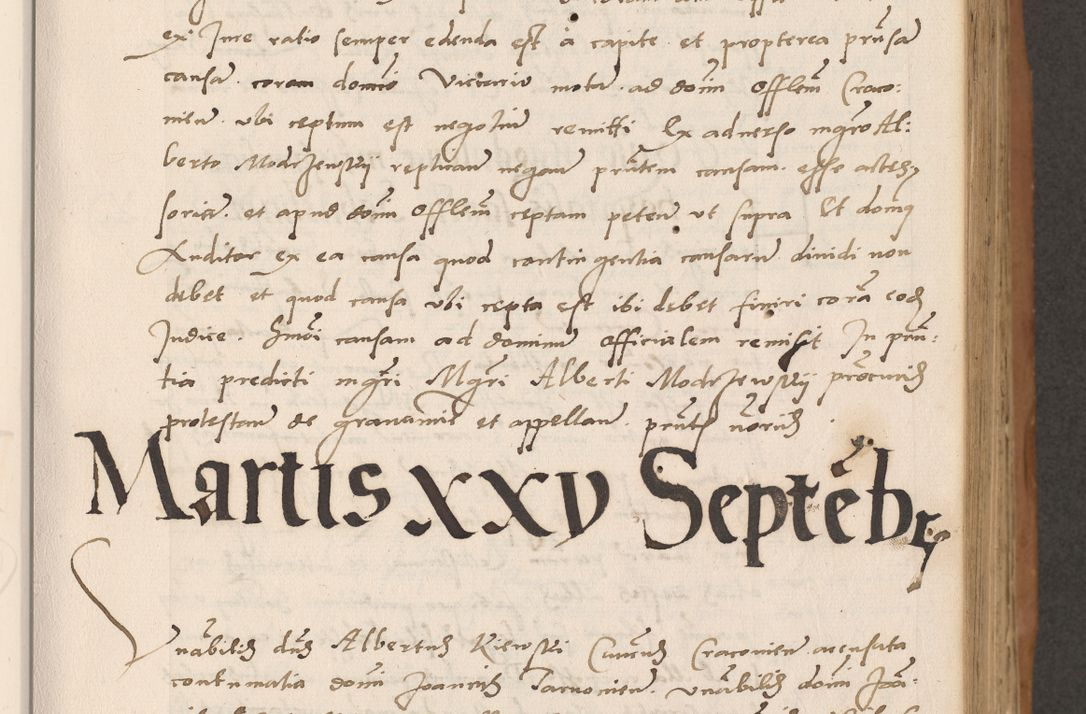 ex Jure ratio semper edenda est a capite et propterea prnsa
causa coram domino Vicario mota ad dom Offlem Craco:
nien ubi ceptum est negotium remitti Ex adverso mgro Al:
berto Modrzewskij replican negan prntem causam esse actes
soriam et apud dom Offlem ceptam peten ut supra Et domq
Auditor ex ea causa quod contingentia causarum dividi non
debet et quod causa ubi cepta est ibi debet finiri cora eod
Judice Hmoi causam ad dominum Officialem remisit In prn:
tia predicti mgri Mgri Alberti Modrzewskij procuris
protestan de gravamine et appellan prntib
Martis XXV Septeb
Vnabilis dns Albertus Kiewski Cancus Cracovien accusata
contumatia domi Joannis Tarnovien Vnabilis domi Joa: